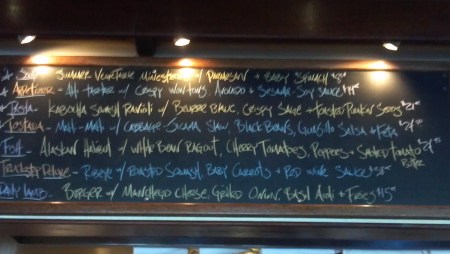 Soup - Summer Vegetable Minestrone w/ Parmesan + Baby Spinach $8
Appetizer - Ahi w/ Crispy Wontons, Avocado + Sesame-Soy Sauce
Pasta - Kabocha Squash Ravioli w/ Beurre Blanc, Crispy Sage + Toasted Pumpkin Seeds
Tostada - Mahi-Mahi w/ Cabbage Slaw, Black Beans, Salsa + Feta
Fish - Alaskan Halibut w/ White Bean Ragout, Cherry Tomatoes, Peppers + Smoked Tomato Butter
- Ribeye w/ Roasted Squash, Baby Carrots + Red Wine Sauce
Daily Lamb - Burger w/ Manchego Cheese, Grilled Onion, Basil Aioli + Fries $15